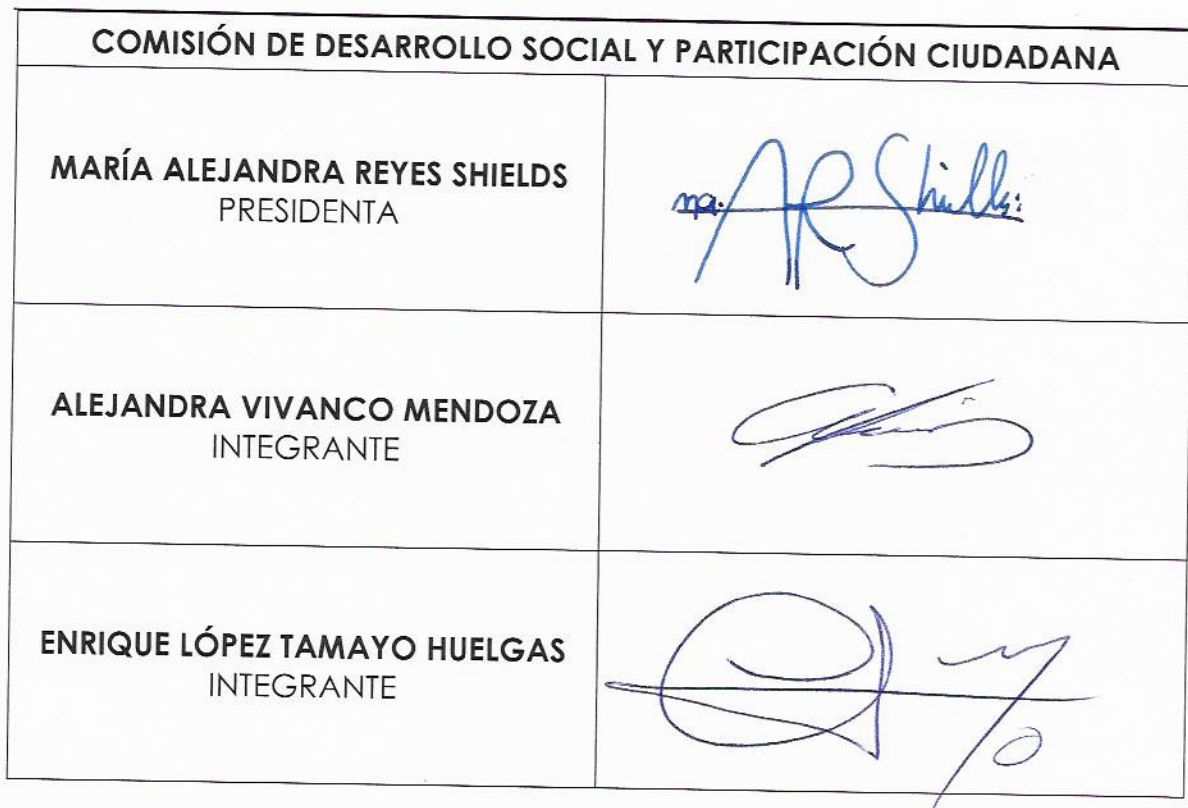 COMISIÓN DE DESARROLLO SOCIAL Y PARTICIPACIÓN CIUDADANA
MARÍA ALEJANDRA REYES SHIELDS
PRESIDENTA
ma. AR Shields
ALEJANDRA VIVANCO MENDOZA
INTEGRANTE
ENRIQUE LÓPEZ TAMAYO HUELGAS
INTEGRANTE